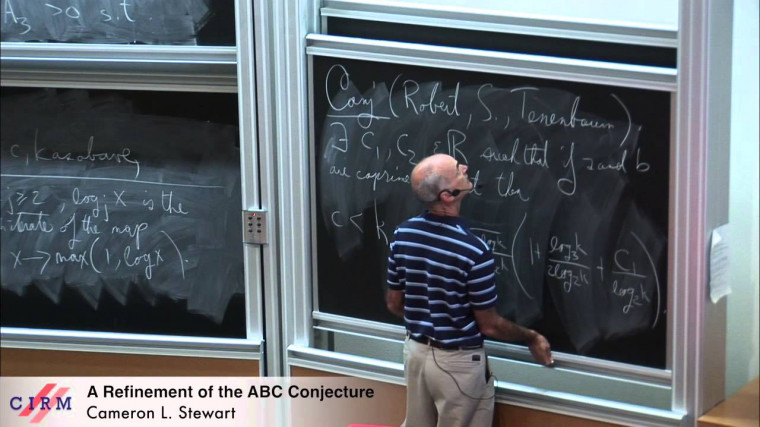 A₃ > 0 s.t
c, k as above,
j ≥ 2, log_j X is the
iterate of the map
X → max(1, log X).
Conj (Robert, S., Tenenbaum).
∃ C₁, C₂ ∈ R such that if a and b
are coprime
c < k
log k
log₂ k
(1 + log₃ k / 2 log₂ k + C₁ / log₂ k).
CIRM
A Refinement of the ABC Conjecture
Cameron L. Stewart